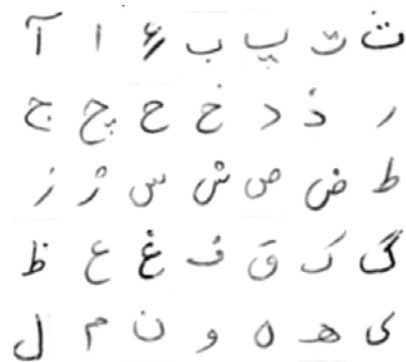 آ ا ء ب پ ت ث
ج چ ح خ د ذ ر
ز ژ س ش ص ض ط
ظ ع غ ف ق ک گ
ل م ن و ه هـ ی